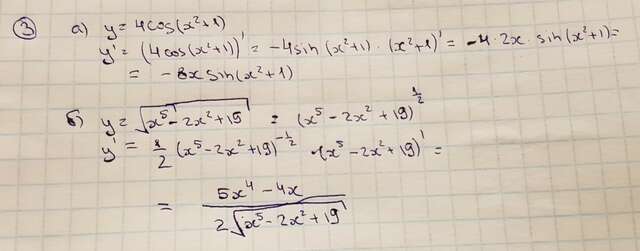 ③ а) y = 4cos(x²+1)
y' = (4cos(x²+1))' = -4sin(x²+1)·(x²+1)' = -4·2x·sin(x²+1)=
= -8x sin(x²+1)
б) y = √(x⁵-2x²+19) = (x⁵-2x²+19)^(1/2)
y' = 1/2 (x⁵-2x²+19)^(-1/2) ·(x⁵-2x²+19)' =
= (5x⁴-4x)/(2√(x⁵-2x²+19))